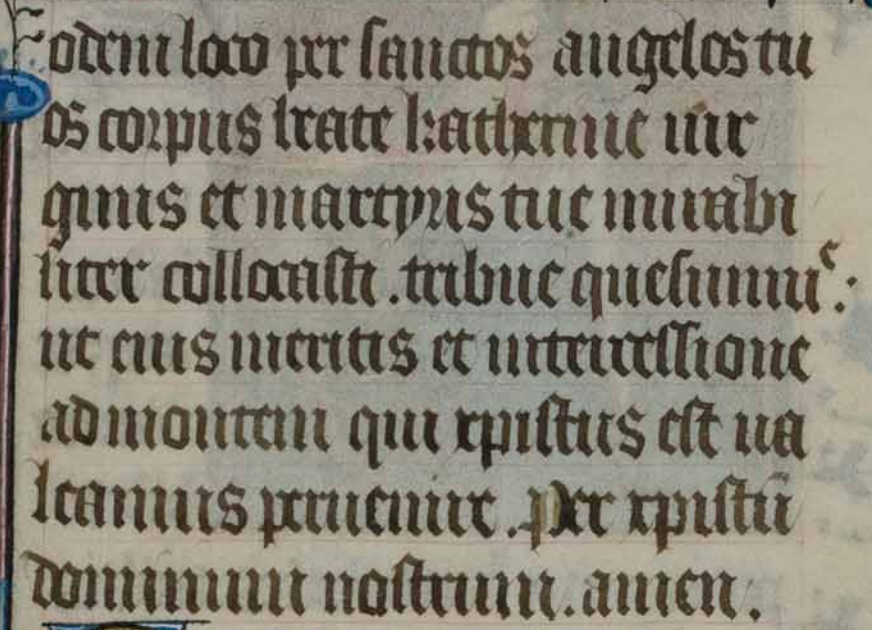 odem loco per sanctos angelos tu
os corpus beate katherine uir
ginis et martyris tue mirabi
liter collocasti . tribue quesumuꝰ :
ut eius meritis et intercessione
ad montem qui xpistus est ua
leamus peruenire . Per xpistū
dominum nostrum . amen .